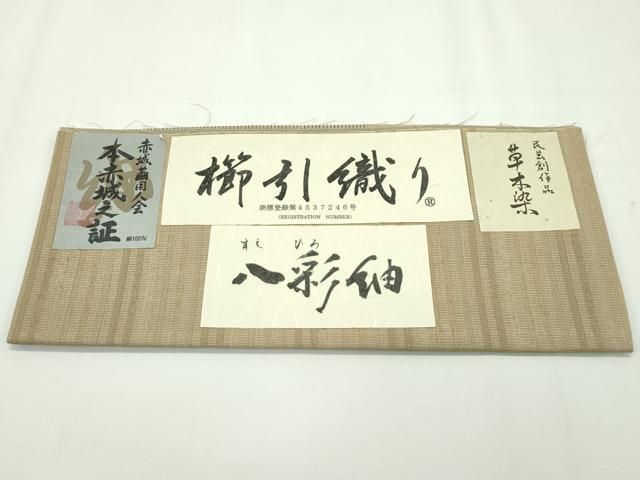 赤城繭田人会
本赤城之証
絹100%
櫛引織り®
商標登録第4537246号
(REGISTRATION NUMBER)
すえ ひろ
八彩紬
民芸創作品
草木染